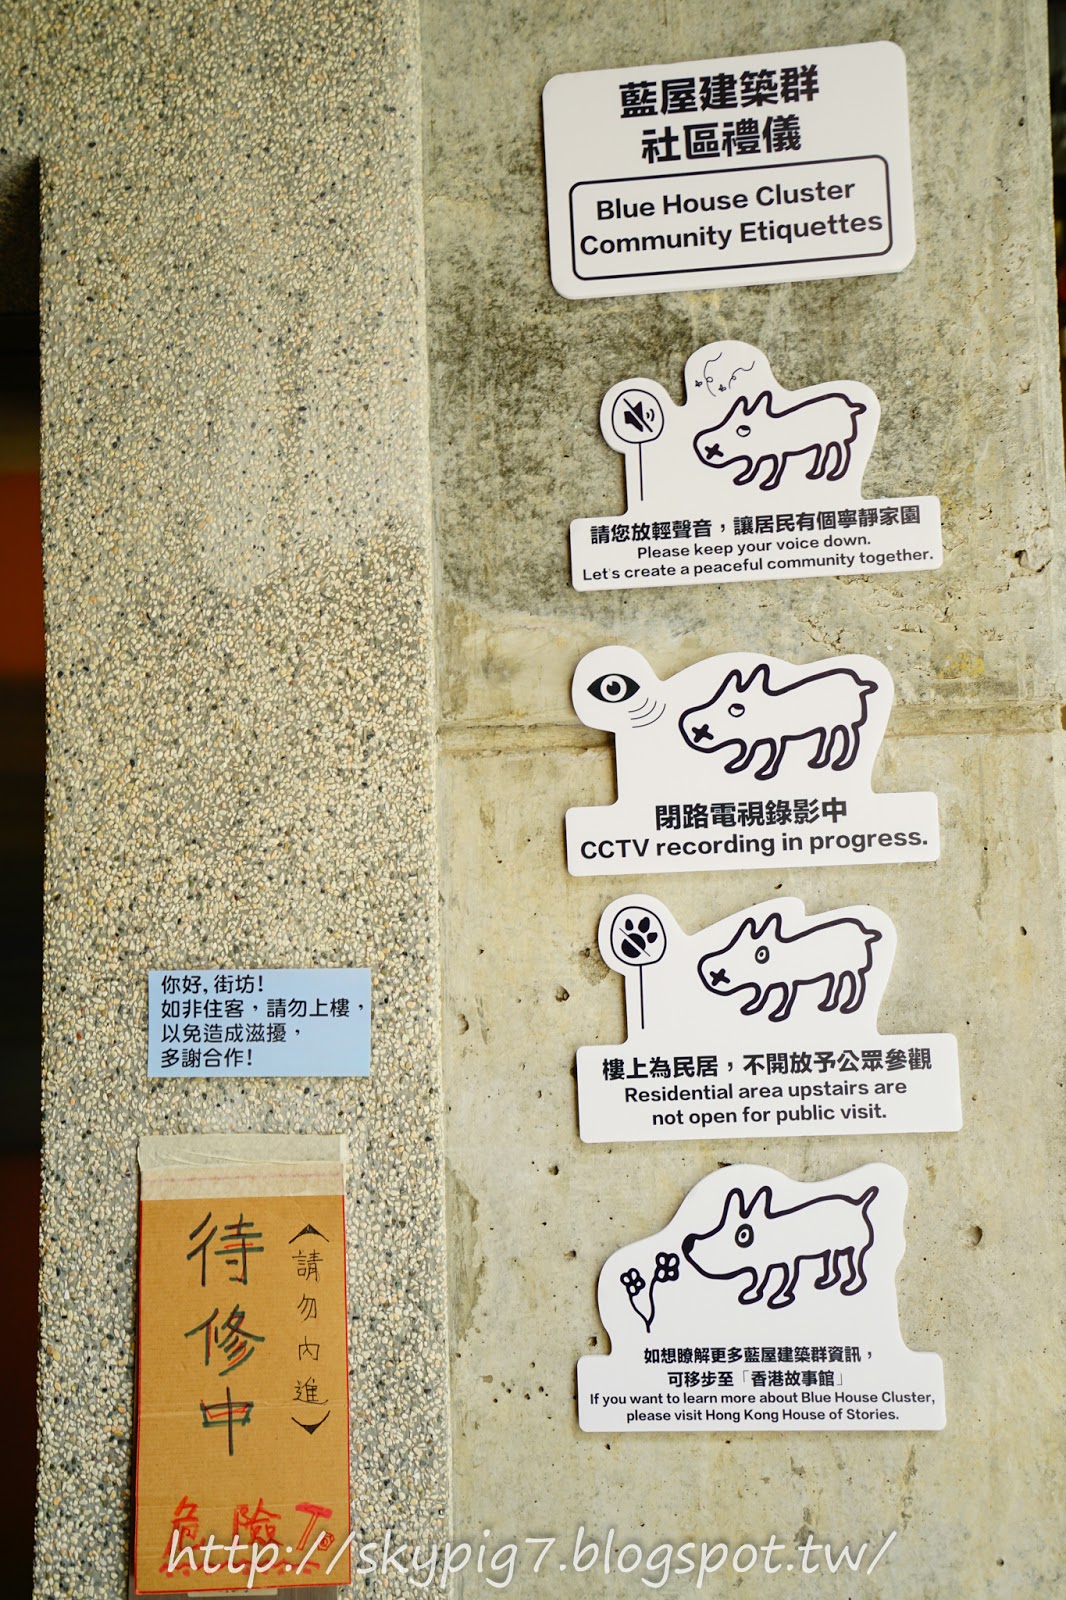 藍屋建築群
社區禮儀
Blue House Cluster
Community Etiquettes
請您放輕聲音，讓居民有個寧靜家園
Please keep your voice down.
Let's create a peaceful community together.
閉路電視錄影中
CCTV recording in progress.
樓上為民居，不開放予公眾參觀
Residential area upstairs are
not open for public visit.
如想瞭解更多藍屋建築群資訊，
可移步至「香港故事館」
If you want to learn more about Blue House Cluster,
please visit Hong Kong House of Stories.
你好, 街坊!
如非住客，請勿上樓，
以免造成滋擾，
多謝合作!
待修中
（請勿內進）
危險
http://skypig7.blogspot.tw/